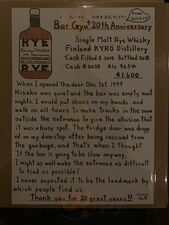 Bar Gyu⁺ 20th Anniversary
Single Malt Rye Whisky
Finland KYRÖ Distillery
Cask Filled
Cask #0028
¥1,600.
RYE
RYE
When I opened the door Dec 1st. 1999
Niseko was quiet and the bar was empty most
nights. I would put shoes on my hands and
walk on all fours to make tracks in the snow
outside the entrance to give the allusion that
it was a busy spot. The fridge door was drop
ped off on my door after being rescued from
the garbage, and that's when I thought
"if the bar is going to be slow anyway,
I might as well make the entrance as difficult
to find as possible!
I never expected it to be the landmark by
which people find us.
Thank you for 20 great years!!